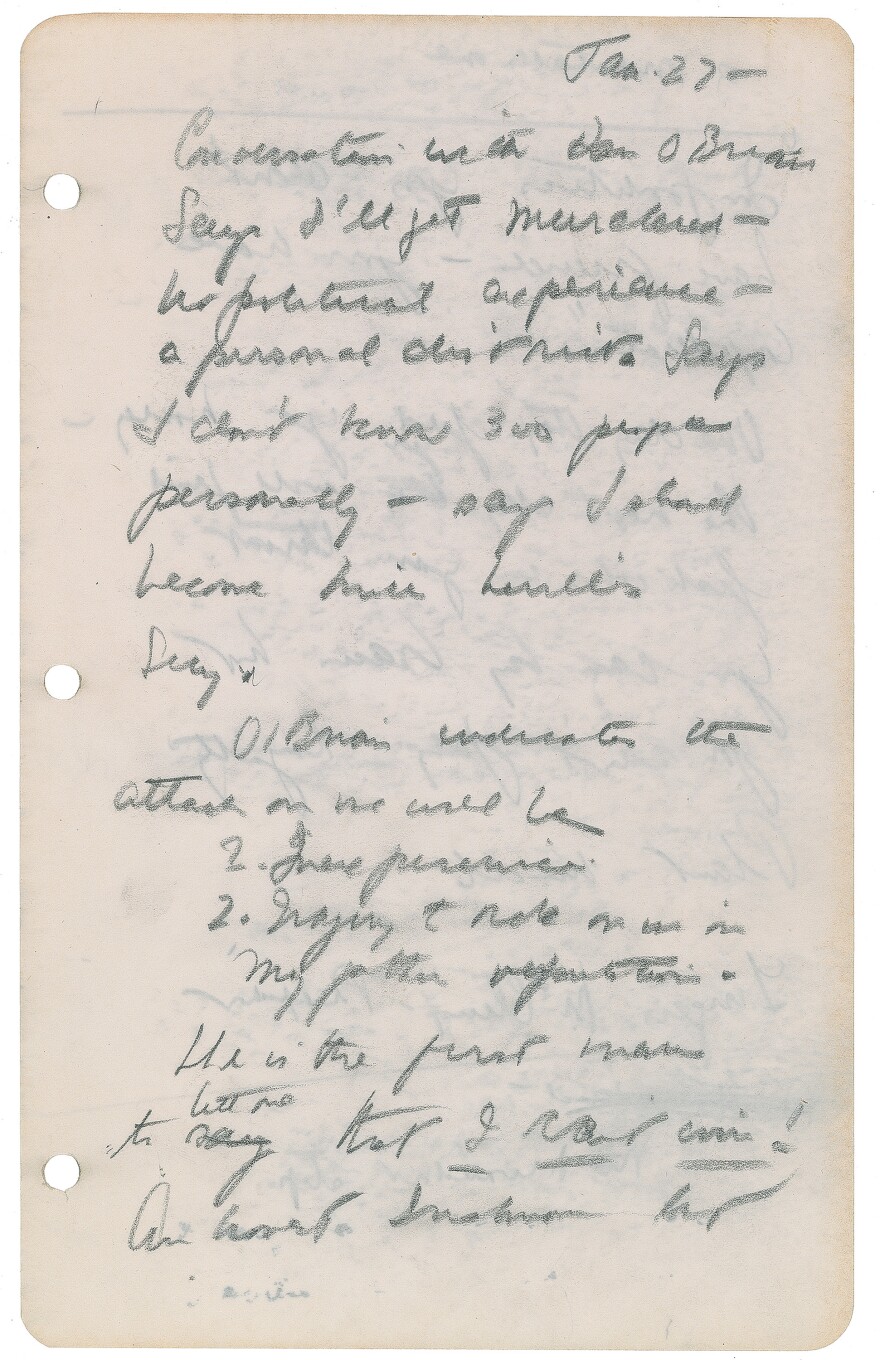 Jan. 27 –
Conversation with Dan O'Brien
Says I'll get murdered –
No political experience –
a personal district. Says
I don't know 300 people
personally – says I should
become Mike Neville's
Secy.
O'Brien indicates the
attack on me will be
1. Inexperience.
2. Trying to ride on in on
My father reputation.
He is the first man
bet me
to say that I can't win!
An honest Irishman but